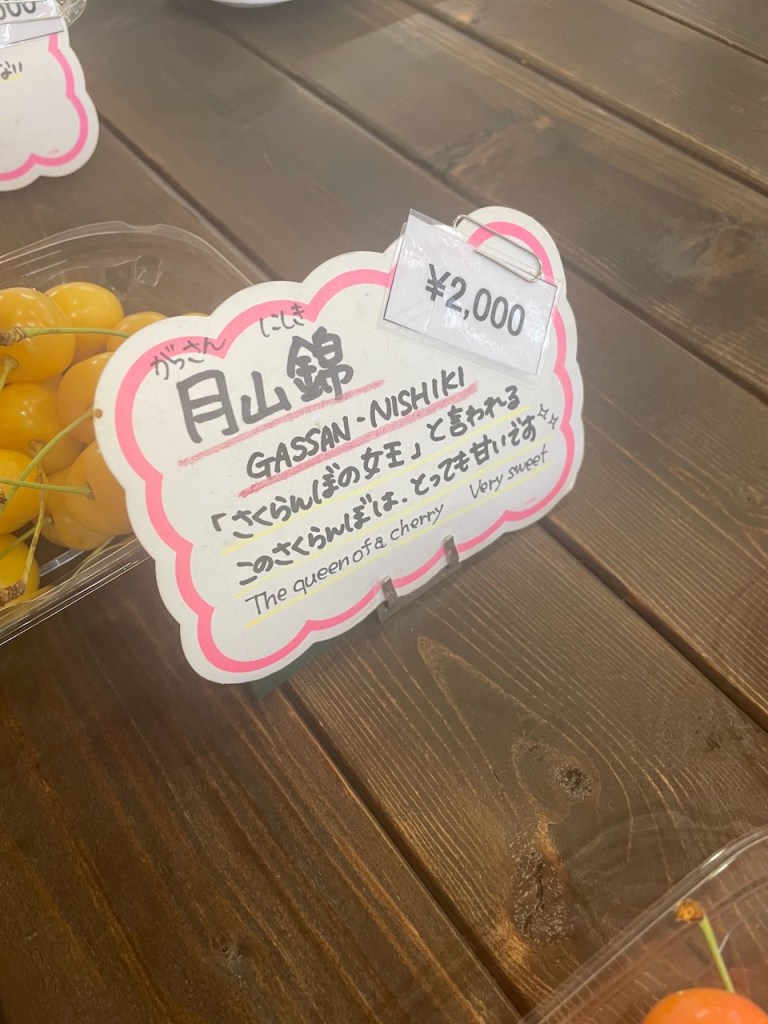 000
ない
¥2,000
がっさん にしき
月山錦
GASSAN・NISHIKI
「さくらんぼの女王」と言われる
このさくらんぼは、とっても甘いです
The queen of a cherry Very sweet